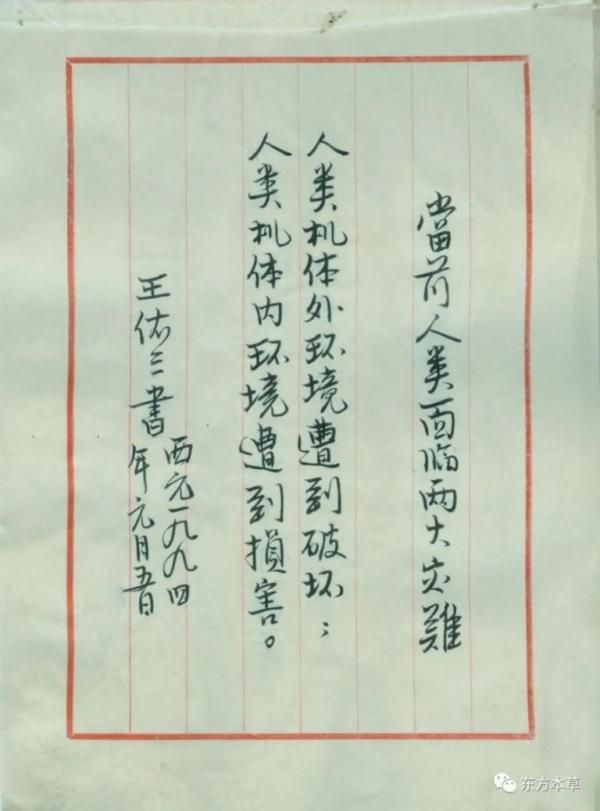 當前人类面临两大灾難
人类机体外环境遭到破坏；
人类机体内环境遭到損害。
王佑三書
西元一九九四
年元月五日
东方本草